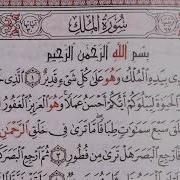 سُورَةُ الْمُلْكِ
بِسْمِ اللهِ الرَّحْمٰنِ الرَّحِيْمِ
بِيَدِهِ الْمُلْكُ وَهُوَ عَلٰى كُلِّ شَيْءٍ قَدِيْرٌ ۝١ الَّذِيْ
لِيَبْلُوَكُمْ اَيُّكُمْ اَحْسَنُ عَمَلًا وَهُوَ الْعَزِيْزُ الْغَفُوْرُ
سَبْعَ سَمٰوَاتٍ طِبَاقًا مَا تَرٰى فِيْ خَلْقِ الرَّحْمٰنِ
الْبَصَرَ هَلْ تَرٰى مِنْ فُطُوْرٍ ۝٣ ثُمَّ ارْجِعِ الْبَصَرَ